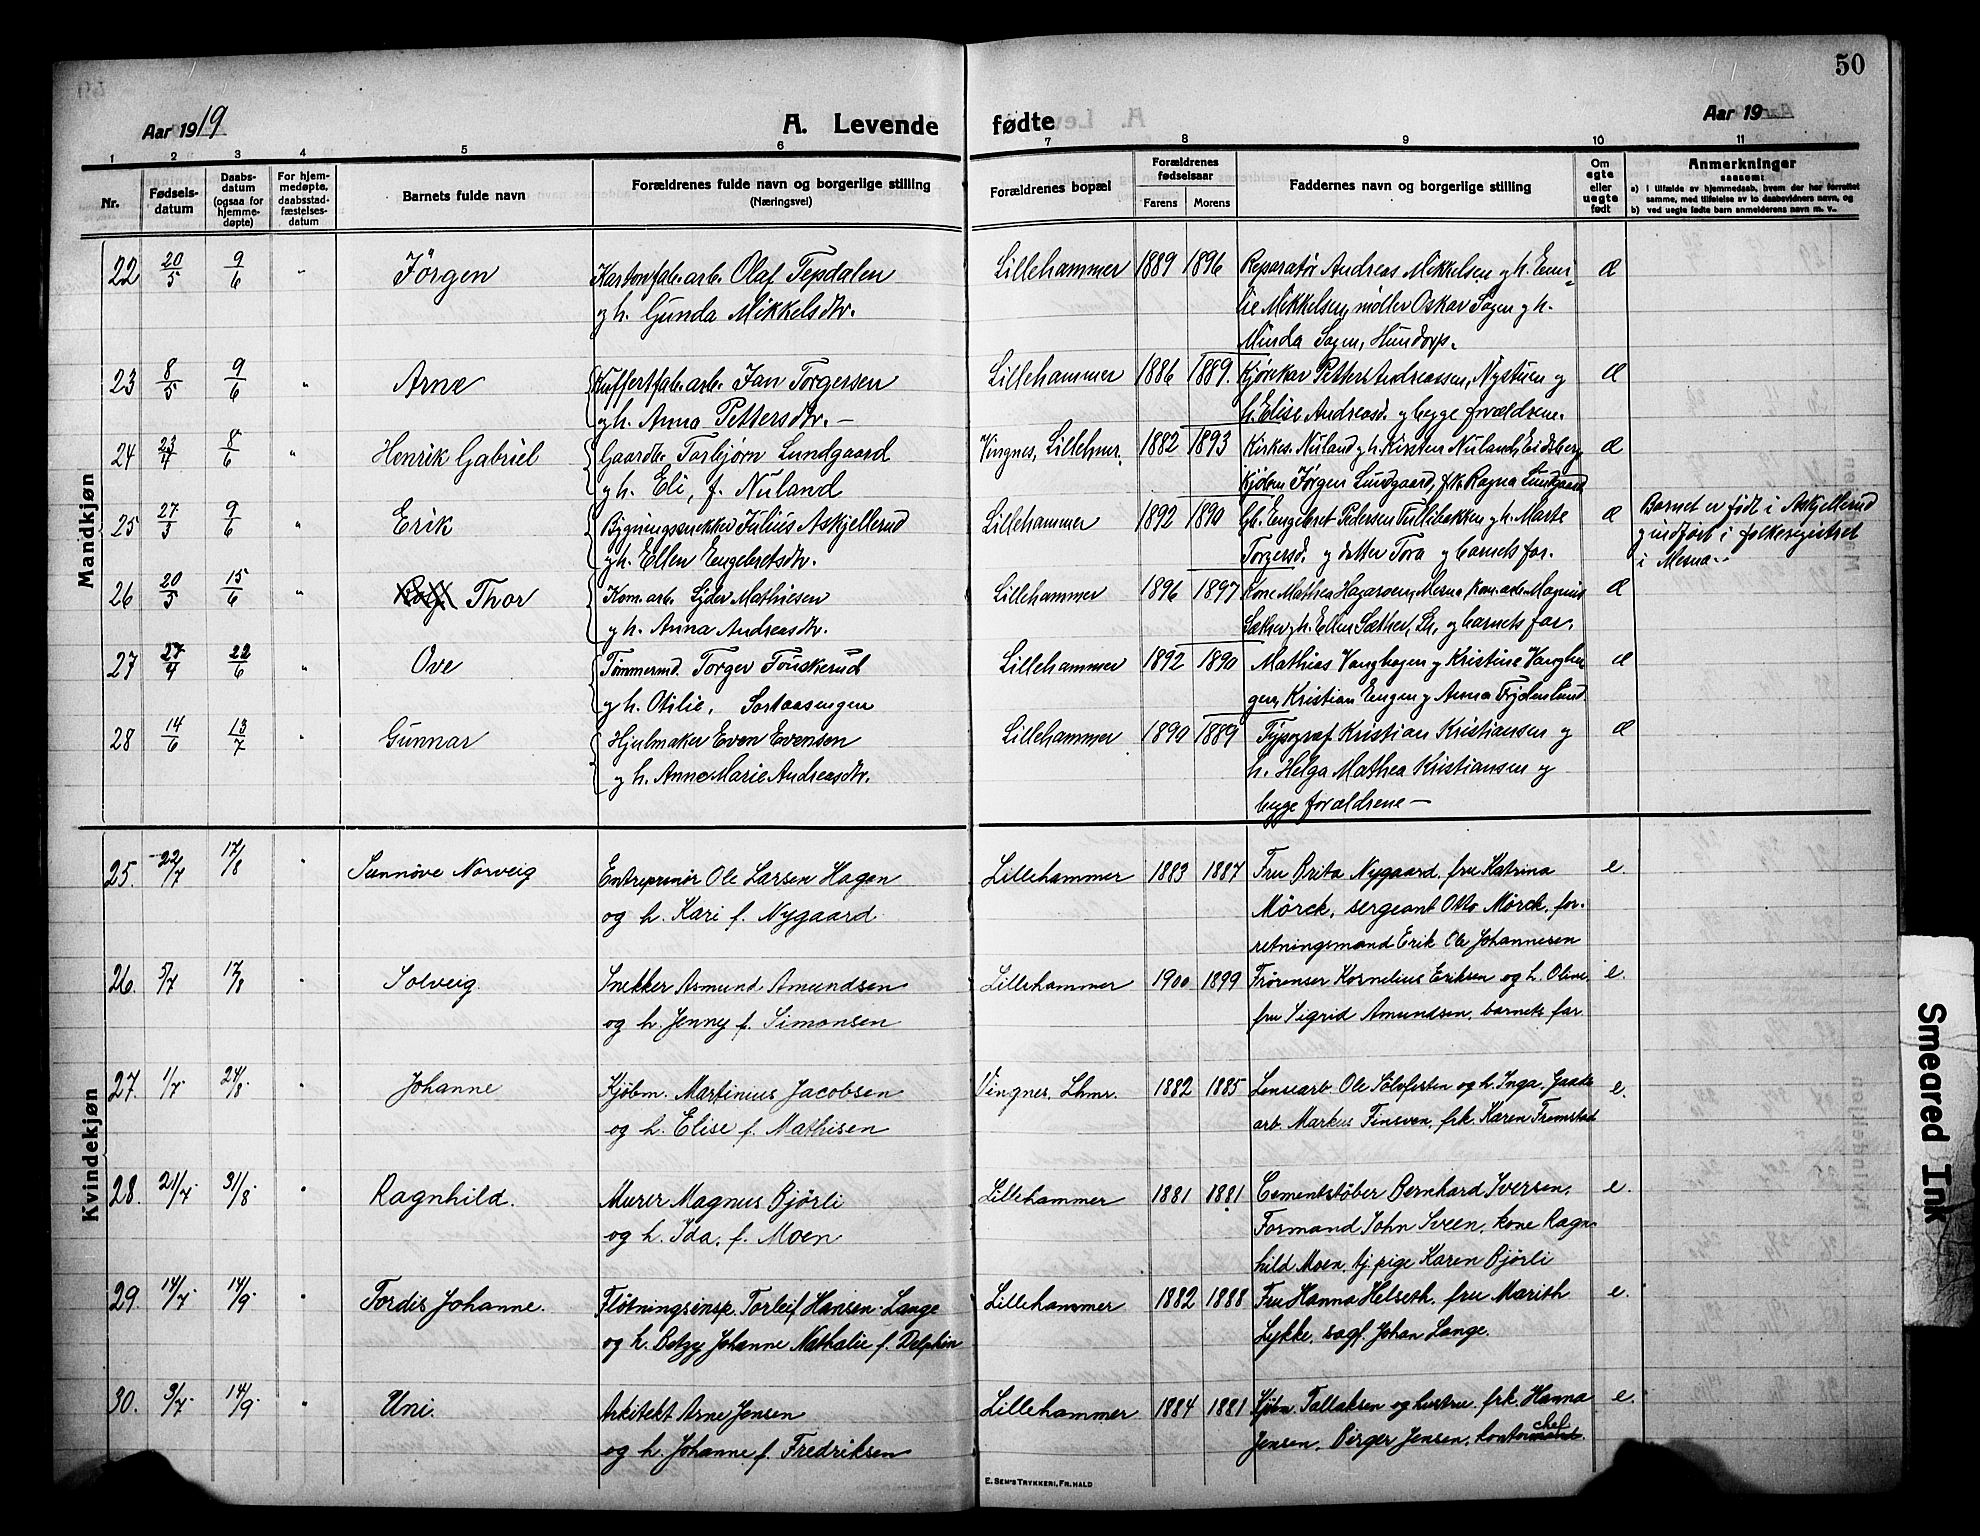 50
Aar 1919
A. Levende fødte
Aar 19
1 2 3 4 5 6 7 8 9 10 11
Nr.
Fødsels-
datum
Daabs-
datum
(ogsaa for
hjemme-
døpte)
For hjem-
medøpte,
daabsstad-
fæstelses-
datum
Barnets fulde navn
Forældrenes fulde navn og borgerlige stilling
(Næringsvei)
Forældrenes bopæl
Forældrenes
fødselsaar
Farens Morens
Faddernes navn og borgerlige stilling
Om
egte
eller
uegte
født
Anmerkninger
saasom:
a) i tilfælde av hjemmedaab, hvem der har forrettet
samme, med tilføielse av to daabsvidners navn, og
b) ved uegte fødte barn anmelderens navn m. v.
Mandkjøn
22 20/5 9/6 " Jörgen Kartonfab.arb. Olaf Tepdalen Lillehammer 1889 1896 Reparatør Andreas Mikkelsen y h. Emi- æ
y h. Gunda Mikkelsdtr. lie Mikkelsen, møller Oskar Sagen y h.
Minda Sagen, Hundorp.
23 8/5 9/6 " Arne Kuffertfab.arb. Jan Torgersen Lillehammer 1886 1889. Kjørekar Petter Andreassen, Nystuen y æ
y h. Anna Pettersdtr. — h. Elise Andreasd. y begge forældrene.
24 23/4 8/6 " Henrik Gabriel Gaardbr. Torbjørn Lundgaard Vingnes, Lillehmr. 1882 1893 Kirkes. Nuland y h. Kirsten Nuland, Eidsberg æ
y h. Eli, f. Nuland Kjøbm Jørgen Lundgaard, frk Ragna Lundgaard
25 27/5 9/6 " Erik Bygningssnekker Julius Askjellerud Lillehammer 1892 1890 Gb. Engebret Pedersen Tullibakken y h. Marte æ Barnet er født i Askjellerud
y h. Ellen Engebretsdtr. Torgersd. y datter Tora y barnets far. y indført i folkeregistret
i Mesna.
26 20/5 15/6 " Thor Kom.arb. Lyder Mathiesen Lillehammer 1896 1897 Kone Mathea Hagaroen, Mesna, kom.arb. Magnus æ
y h. Anna Andreasdtr. Sæther y h. Ellen Sæther, Lh, y barnets far.
27 27/4 22/6 " Ove Tømmermd. Torger Fouskerud Lillehammer 1892 1890 Mathias Vanghagen y Kristine Vangha- æ
y h. Otilie, Sortaasengen gen, Kristian Engen y Anna Frydenlund.
28 14/6 13/7 " Gunnar Hjulmaker Even Evensen Lillehammer 1890 1889 Typograf Kristian Kristiansen y æ
y h. Anne Marie Andreasdtr. h. Helga Mathea Kristiansen y
begge forældrene —
Kvindekjøn
25. 22/7 17/8 " Sunnöve Norveig Entreprenör Ole Larsen Hagen Lillehammer 1883 1887 Fru Brita Nygaard, fru Katrina e.
og h. Kari f. Nygaard. Mörck, sergeant Otto Mörck, for-
retningsmand Erik Ole Johannesen
26. 5/7 17/8 " Solveig. Snekker Asmund Amundsen Lillehammer 1900 1899 Frörenser Kornelius Eriksen og h. Oline, e.
og h. Jenny f. Simonsen fru Sigrid Amundsen, barnets far
27. 1/7. 24/8. " Johanne Kjöbm. Martinius Jacobsen Vingnes, Lhmr. 1882 1885 Lensearb. Ole Sölvfesten og h. Inga. Gaads e.
og h. Elise f. Mathisen arb. Markus Finsven, frk. Karen Fremstad
28. 21/7. 31/8. " Ragnhild. Murer Magnus Björli Lillehammer 1881 1881 Cementstöber Bernhard Iversen. e.
og h. Ida. f. Moen Formand John Sveen, kone Ragn-
hild Moen, tj. pige Karen Björli
29. 14/7. 14/9. " Tordis Johanne. Flötningsinsp. Torleif Hansen-Lange Lillehammer 1882 1888 Fru Hanna Helseth. fru Marith e.
og h. Betzy Johanne Nathalie f. Delphin Lykke, sagf. Johan Lange.
30. 3/7. 14/9. " Uni. Arkitekt Arne Jensen Lillehammer 1884 1881 Kjöbm. Tallaksen og hustru, frk. Hanna e.
og h. Johanne f. Fredriksen Jensen. Birger Jensen, kontorchef.
E. SEM'S TRYKKERI, FR.HALD
Smeared Ink